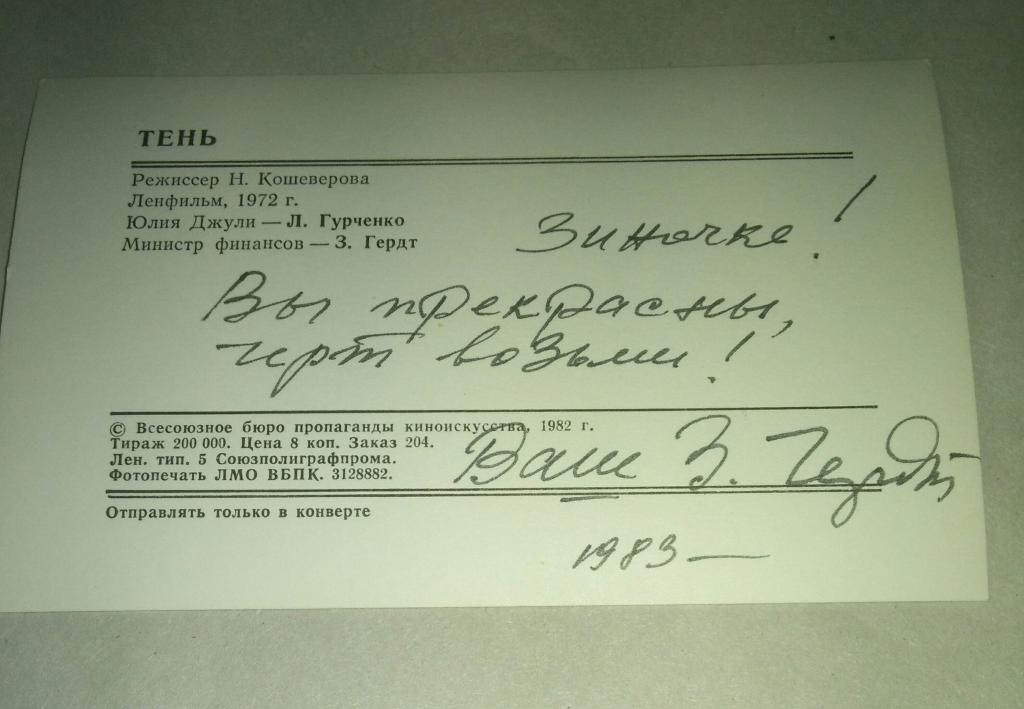 ТЕНЬ
Режиссер Н. Кошеверова
Ленфильм, 1972 г.
Юлия Джули — Л. Гурченко
Министр финансов — З. Гердт
Зиночке!
Вы прекрасны,
черт возьми!
© Всесоюзное бюро пропаганды киноискусства, 1982 г.
Тираж 200 000. Цена 8 коп. Заказ 204.
Лен. тип. 5 Союзполиграфпрома.
Фотопечать ЛМО ВБПК. 3128882.
Ваш З. Гердт
Отправлять только в конверте
1983 —